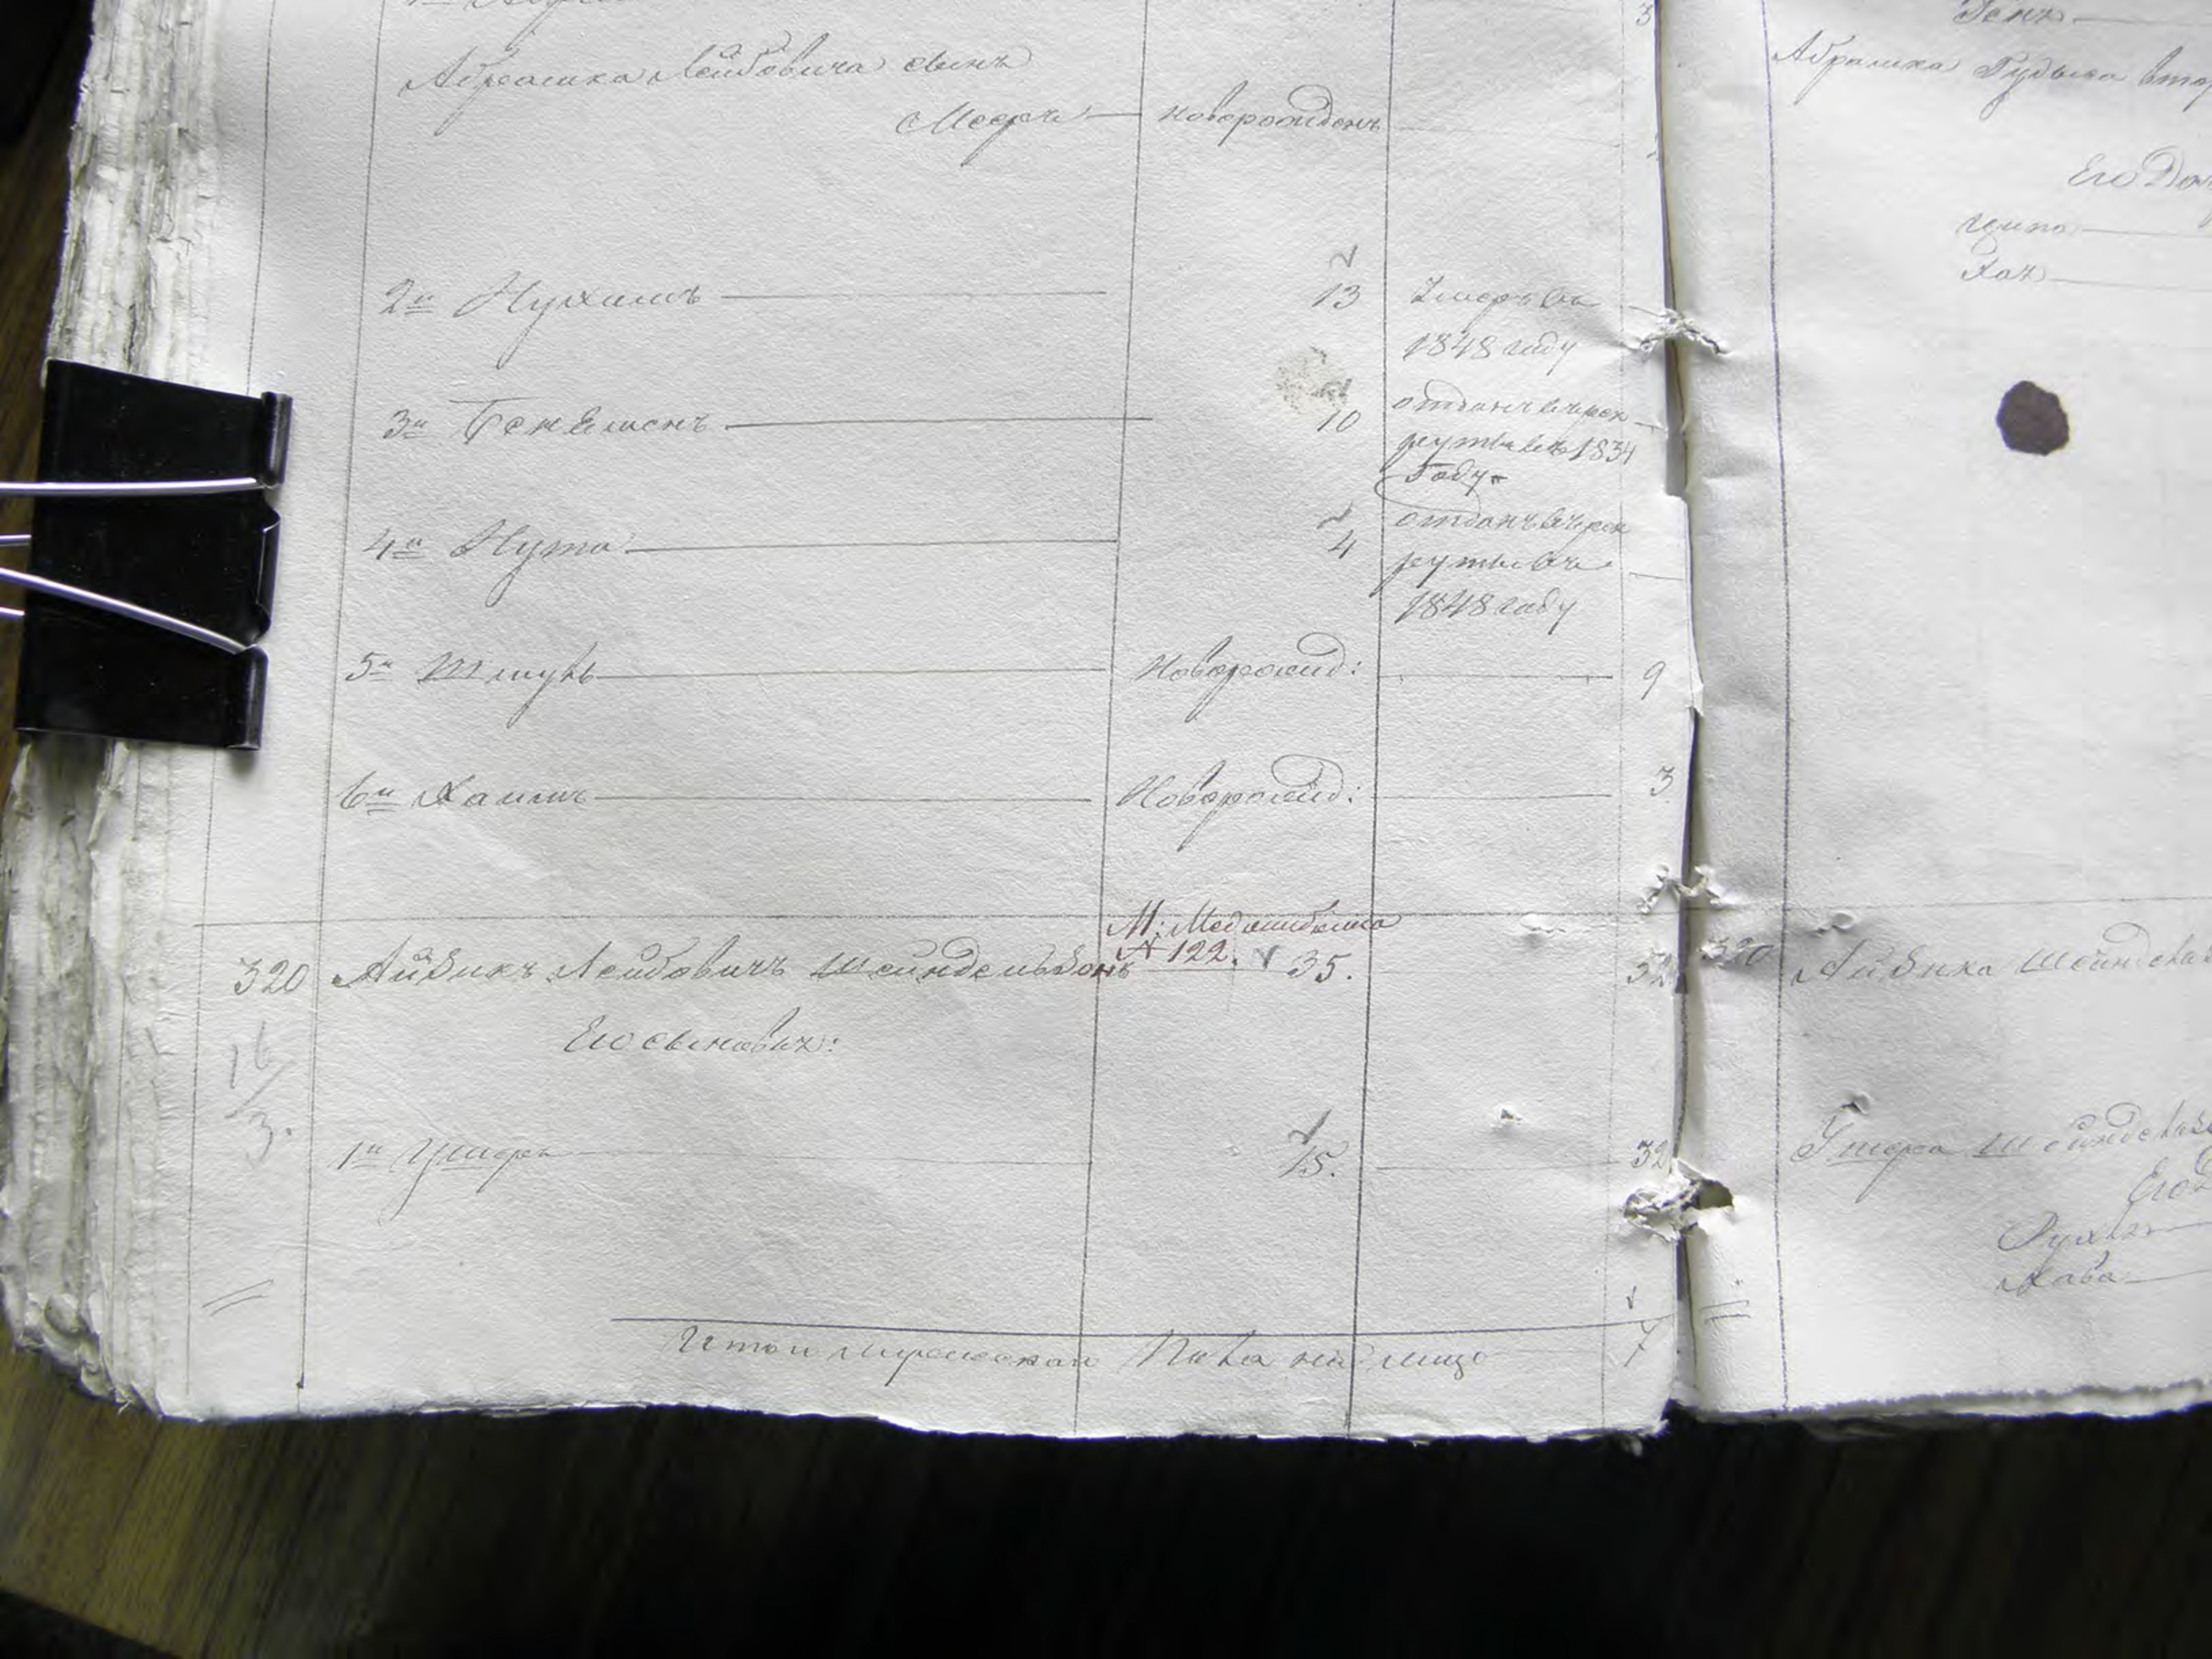 3
Абрашка Лейбовича сынъ
Мееръ новорожденъ
2й Нухимъ 13 Умеръ въ
1848 году
3й Бенѣшонъ 10 отданъ въ рек
руты въ 1834
Году
4й Нута 4 отданъ въ рек
руты въ
1848 году
5й Шмуль Новорожд: 9
6й Хаимъ Новорожд: 3
М: Меджибожа
№ 122.
320 Айзикъ Лейбовичъ Шейндельзонъ 35.
Его сыновья:
16/3.
1й Ушеръ 15. 32
Итого мужеска пола на лицо 7
Абрашка Гудыса втор
Его До
Ципа
Хая
320 Айзика Шейндельз
Ушера Шейндельз
Его
Рухля
Хава